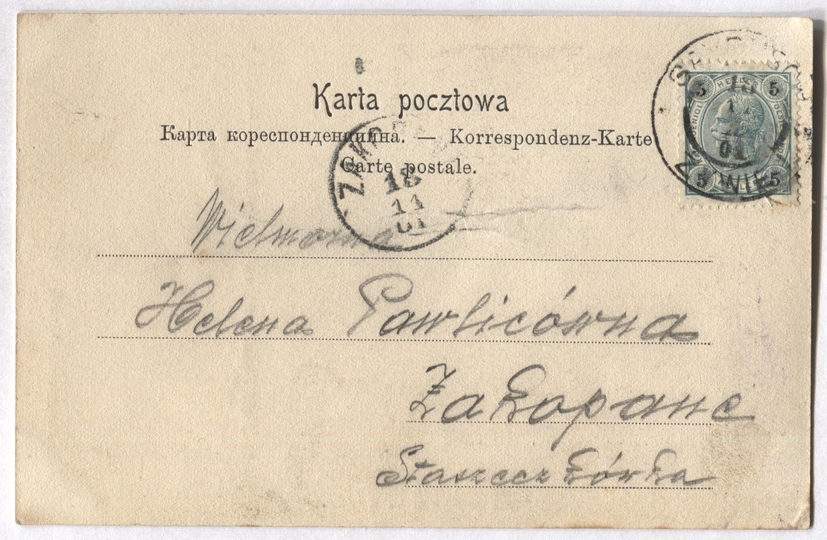 Karta pocztowa
Карта кореспонденцийна. — Korrespondenz-Karte
Carte postale.
18
11
01
5 5
5 5
Wielmożna
Helena Pawlicówna
Zakopane
Staszeczkówka